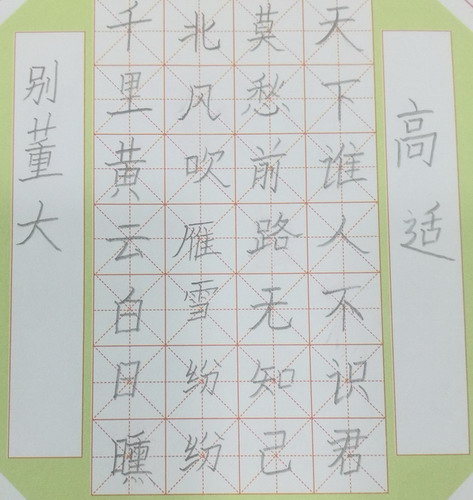 别董大
千里黄云白日曛
北风吹雁雪纷纷
莫愁前路无知己
天下谁人不识君
高适